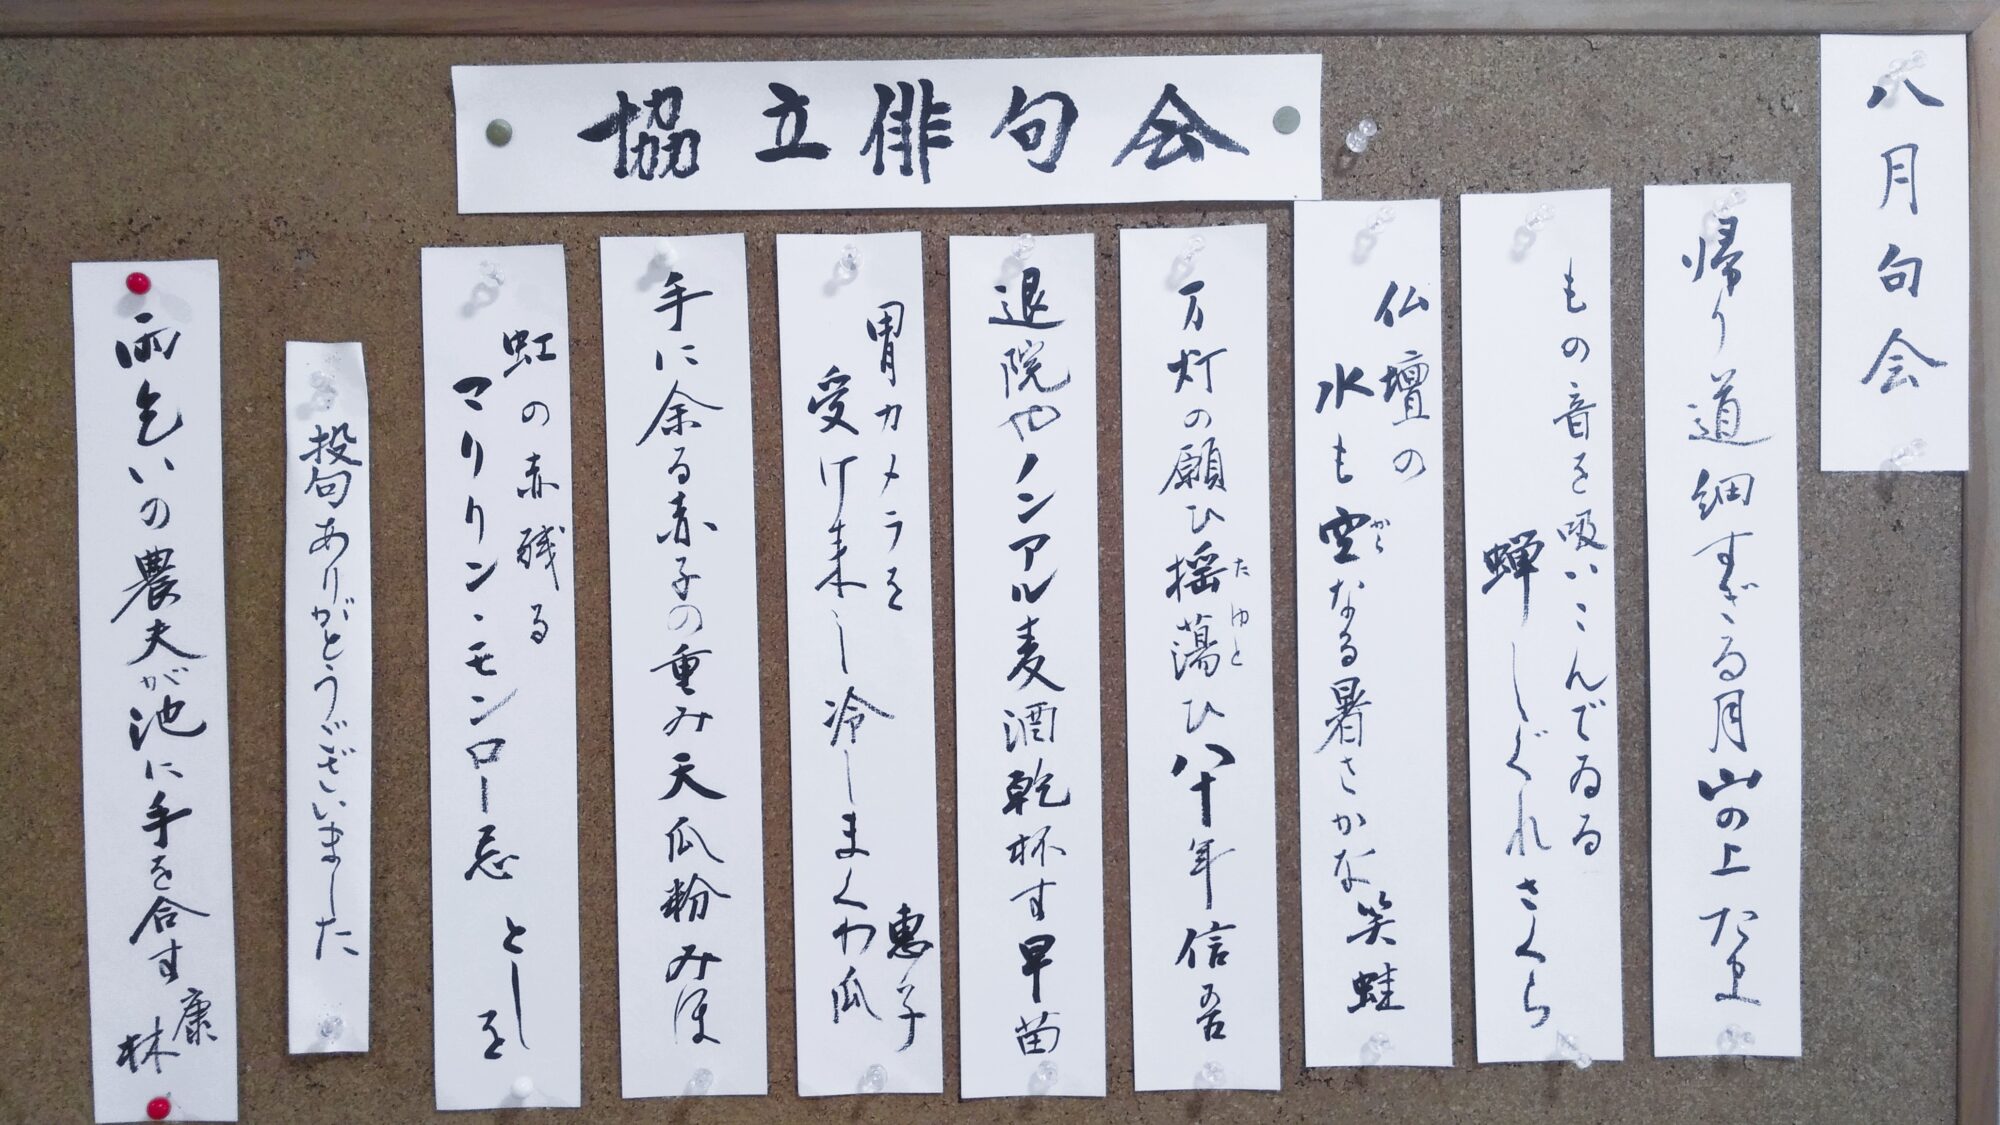 協立俳句会
八月句会
帰り道細すぎる月山の上 たま
もの音を吸いこんでゐる
蝉しぐれ さくら
仏壇の
水も空なる暑さかな 笑蛙
から
万灯の願ひ揺蕩ひ八十年 信吾
たゆと
退院やノンアル麦酒乾杯す 早苗
胃カメラを
受け来し冷しまくわ瓜 惠子
手に余る赤子の重み天瓜粉 みほ
虹の赤残る
マリリン・モンロー忌 としを
投句ありがとうございました
雨乞いの農夫が池に手を合す 康林